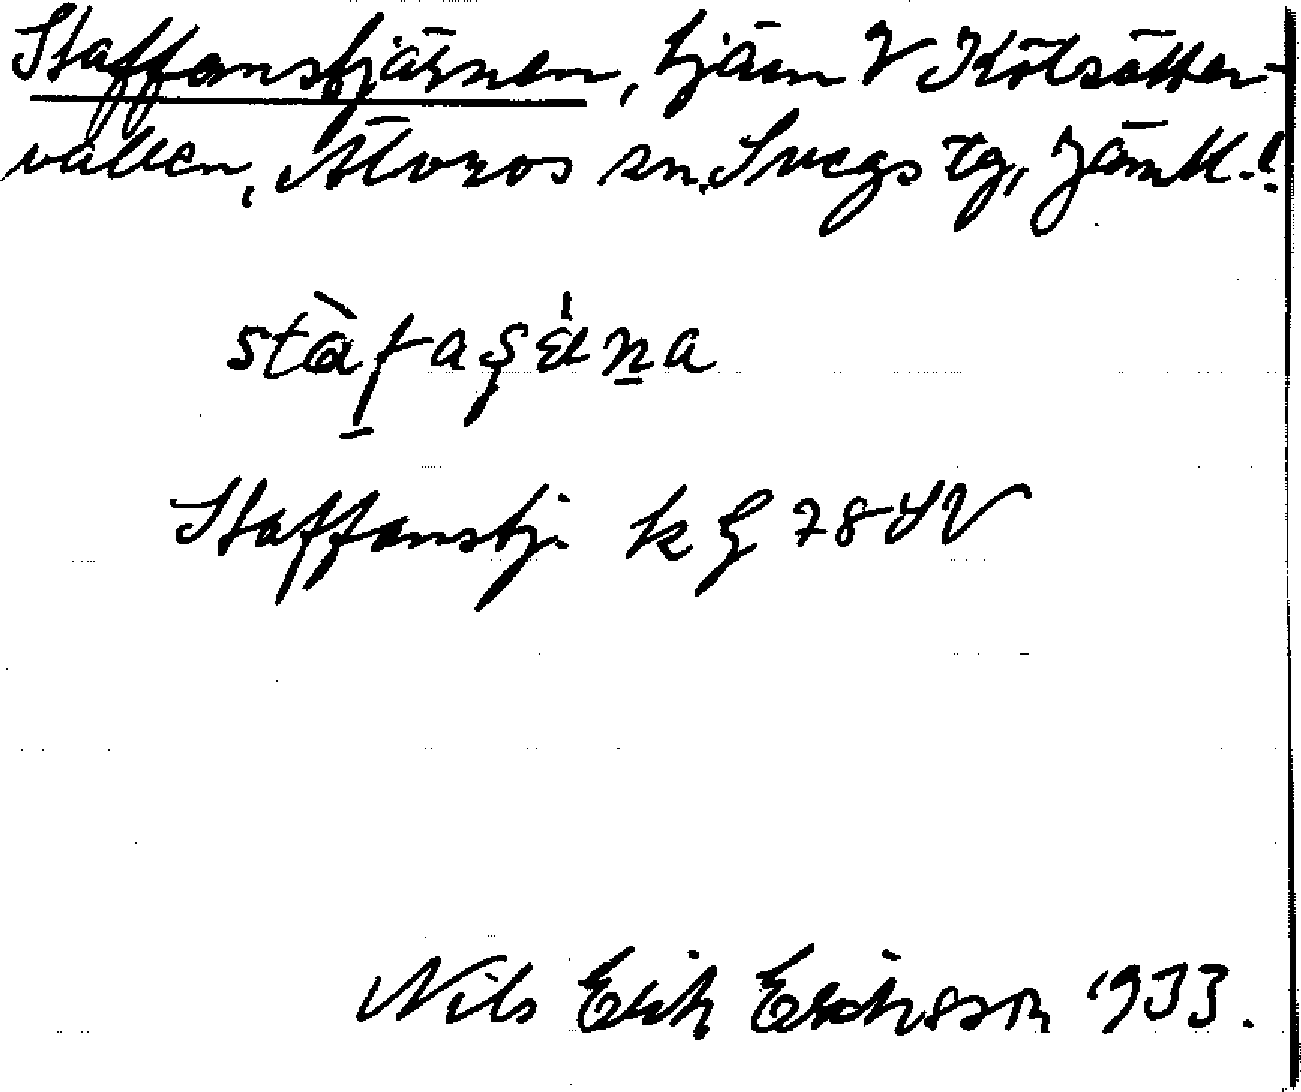 Staffanstjärnen, tjärn V Kölsätter-
vallen, Älvros sn, Svegs tg, Jämtl.!
Staffanstj. k G 78 SV
Nils Erik Eriksson 1933.